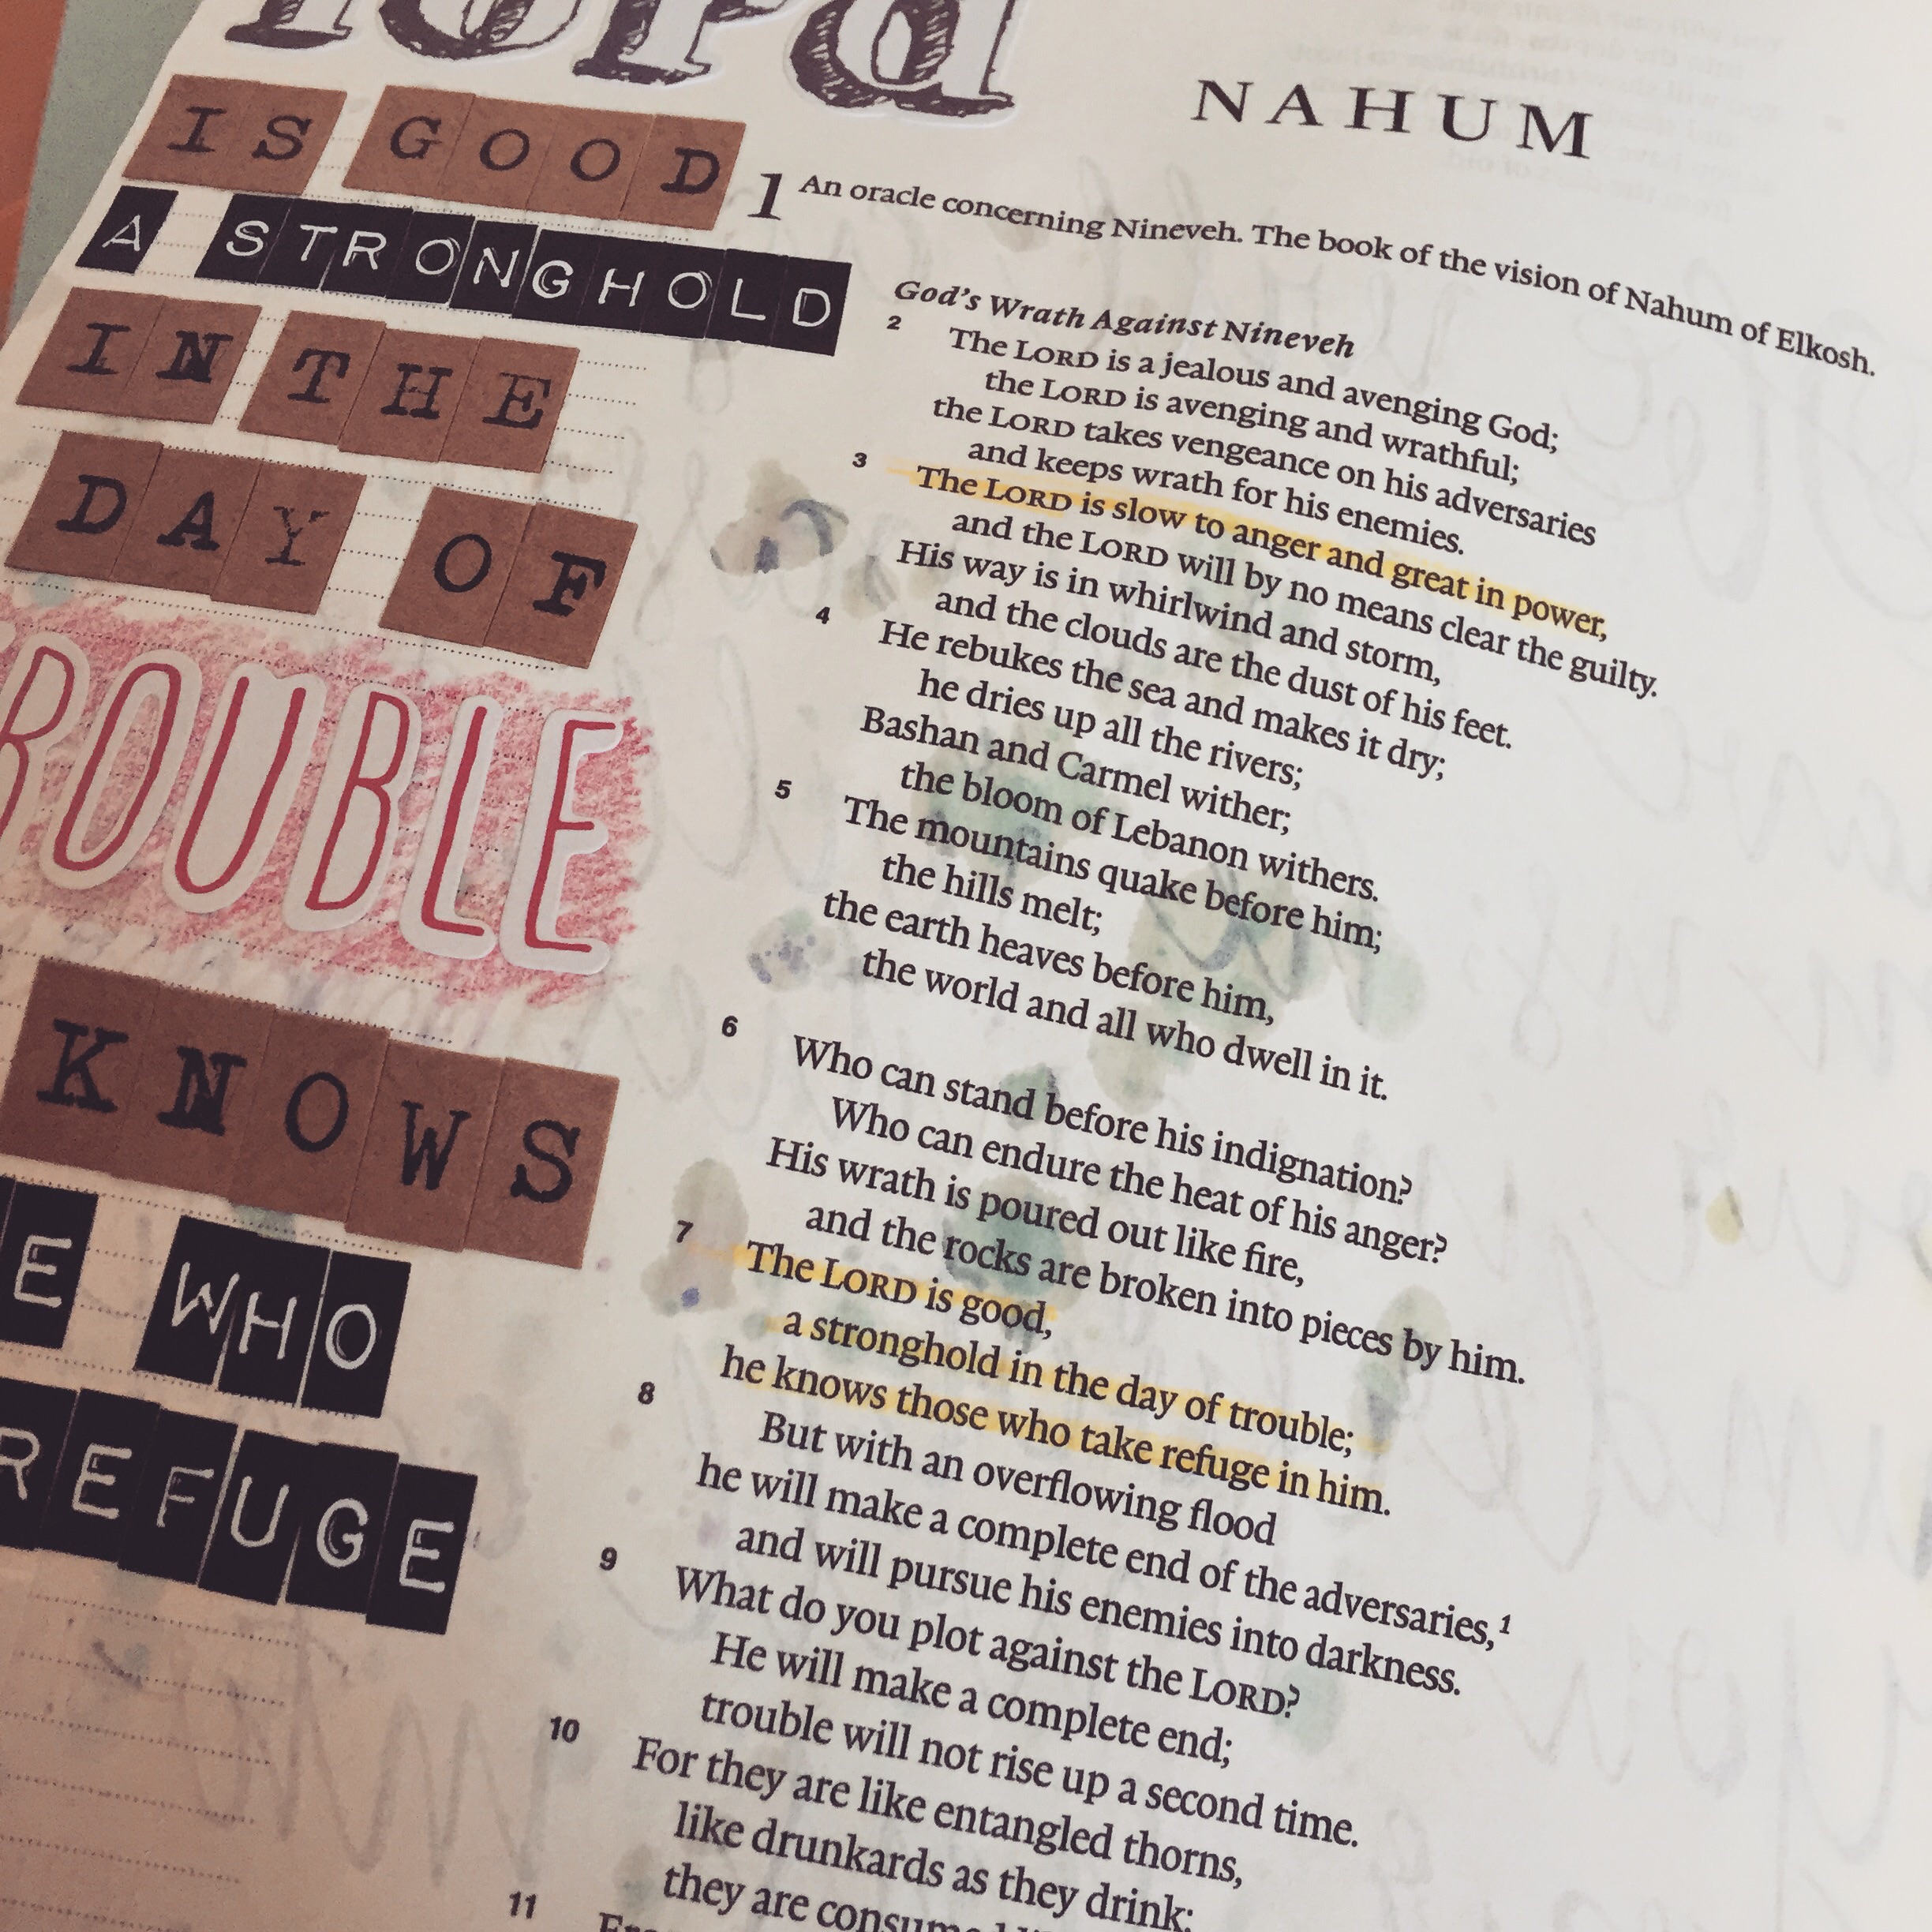 lord
IS GOOD
A STRONGHOLD
IN THE
DAY OF
ROUBLE
KNOWS
E WHO
REFUGE
NAHUM
1 An oracle concerning Nineveh. The book of the vision of Nahum of Elkosh.
God's Wrath Against Nineveh
2 The LORD is a jealous and avenging God;
the LORD is avenging and wrathful;
the LORD takes vengeance on his adversaries
and keeps wrath for his enemies.
3 The LORD is slow to anger and great in power,
and the LORD will by no means clear the guilty.
His way is in whirlwind and storm,
and the clouds are the dust of his feet.
4 He rebukes the sea and makes it dry;
he dries up all the rivers;
Bashan and Carmel wither;
the bloom of Lebanon withers.
5 The mountains quake before him;
the hills melt;
the earth heaves before him,
the world and all who dwell in it.
6 Who can stand before his indignation?
Who can endure the heat of his anger?
His wrath is poured out like fire,
and the rocks are broken into pieces by him.
7 The LORD is good,
a stronghold in the day of trouble;
he knows those who take refuge in him.
8 But with an overflowing flood
he will make a complete end of the adversaries,1
and will pursue his enemies into darkness.
9 What do you plot against the LORD?
He will make a complete end;
trouble will not rise up a second time.
10 For they are like entangled thorns,
like drunkards as they drink;
they are
11